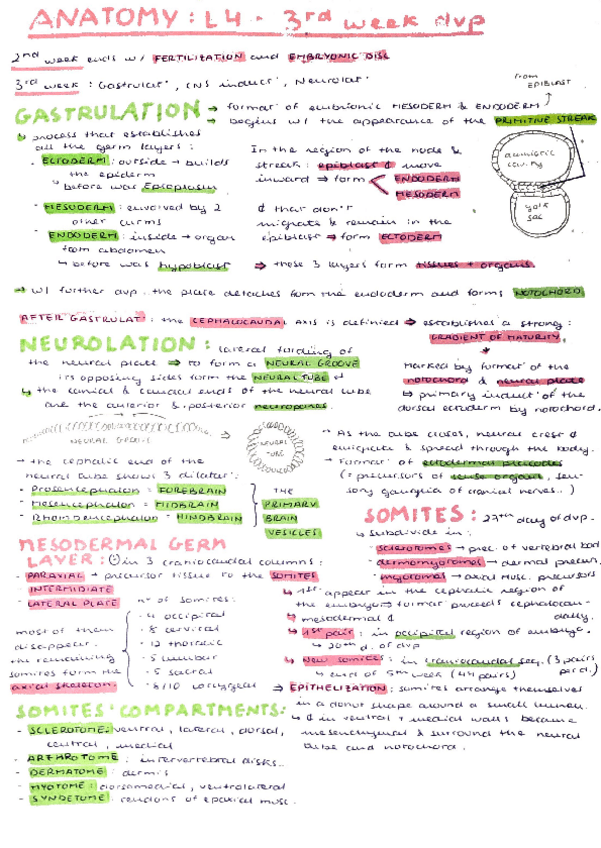 ANATOMY: L4 - 3rd week dvp
2nd week ends w/ FERTILIZATION and EMBRYONIC DISC
3rd week: Gastrulat°, CNS induct°, Neurolat°
from
EPIBLAST
GASTRULATION → format° of embrionic MESODERM & ENDODERM
→ begins w/ the appearance of the PRIMITIVE STREAK
↳ process that establishes
all the germ layers:
- ECTODERM: outside → builds
the epiderm
↳ before was Epiblasm
- MESODERM: envolved by 2
other germs
- ENDODERM: inside → organ
from abdomen
↳ before was hypoblast
In the region of the node &
streak: epiblast ¢ move
inward ⇒ form ENDODERM
MESODERM
¢ that don't
migrate & remain in the
epiblast ⇒ form ECTODERM
⇒ these 3 layers form tissues + organs.
amniotic
cavity
yolk
sac
→ w/ further dvp. the plate detaches form the endoderm and forms NOTOCHORD.
AFTER GASTRULAT°: the CEPHALOCAUDAL axis is defined ⇒ establishes a strong:
GRADIENT OF MATURITY
NEUROLATION: lateral folding of
the neural plate ⇒ to form a NEURAL GROOVE
its opposing sides form the NEURAL TUBE
↳ the cranial & caudal ends of the neural tube
are the anterior & posterior neuropores.
marked by format° of the
notochord & neural plate
↳ primary induct° of the
dorsal ectoderm by notochord.
NEURAL GROOVE
⇒
NEURAL
TUBE
→ the cephalic end of the
neural tube shows 3 dilatat°:
- Prosencephalon = FOREBRAIN
- Mesencephalon = MIDBRAIN
- Rhombencephalon = HINDBRAIN
THE
PRIMARY
BRAIN
VESICLES
As the tube closes, neural crest ¢
emigrate & spread through the body.
→ Format° of ectodermal placodes
(= precursors of sense organs, sen-
sory ganglia of cranial nerves..)
MESODERMAL GERM
LAYER: in 3 craniocaudal columns:
- PARAXIAL → precursor tissue to the SOMITES
- INTERMIDIATE
- LATERAL PLATE
most of them
disappear.
the remaining
somites form the
axial skeleton.
n° of somites:
- 4 occipital
- 8 cervical
- 12 thoracic
- 5 lumbar
- 5 sacral
- 8/10 coccygeal
SOMITES: 27th day of dvp.
↳ Subdivide in:
- sclerotomes → prec. of vertebral bod
- dermomyotomes → dermal precurs.
- myotomes → axial musc. precursors
↳ 1st appear in the cephalic region of
the embryo → format° proceeds cephalocau-
dally.
↳ mesodermal ¢
↳ 1st pair: in occipital region of embryo.
↳ 20th d. of dvp
↳ New somites: in craniocaudal seq. (3 pairs
per d.)
↳ end of 5th week (44 pairs)
⇒ EPITHELIZATION: somites arrange themselves
in a donut shape around a small lumen.
↳ ¢ in ventral + medial walls became
mesenchymal & surround the neural
tube and notochord.
SOMITES: COMPARTMENTS:
- SCLEROTOME: ventral, lateral, dorsal,
central, medial
- ARTHROTOME: intervertebral disks..
- DERMATOME: dermis
- MYOTOME: dorsomedial, ventrolateral
- SYNDETOME: tendons of epaxial musc.